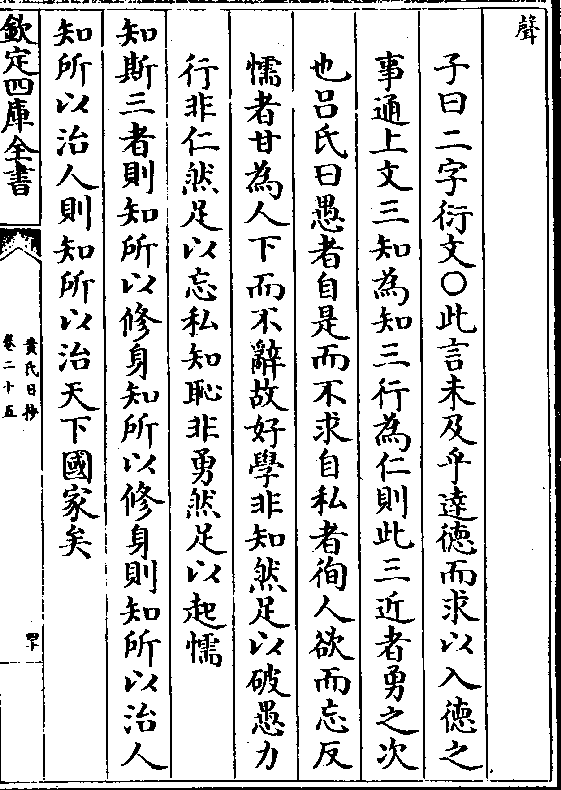 聲
子曰二字衍文○此言未及乎達德而求以入德之
事通上文三知為知三行為仁則此三近者勇之次
也呂氏曰愚者自是而不求自私者徇人欲而忘反
懦者甘為人下而不辭故好學非知然足以破愚力
行非仁然足以忘私知恥非勇然足以起懦
知斯三者則知所以修身知所以修身則知所以治人
知所以治人則知所以治天下國家矣
欽定四庫全書
黃氏日抄
卷二十五